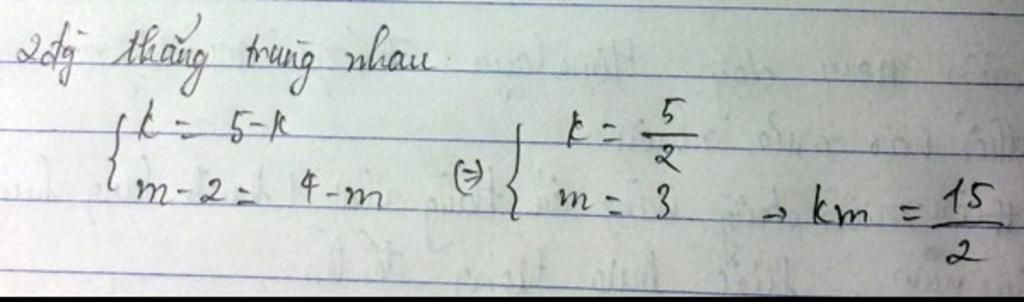 2 đg thẳng trùng nhau
{ k = 5 - k (=) { k = 5/2
{ m - 2 = 4 - m { m = 3 → km = 15/2